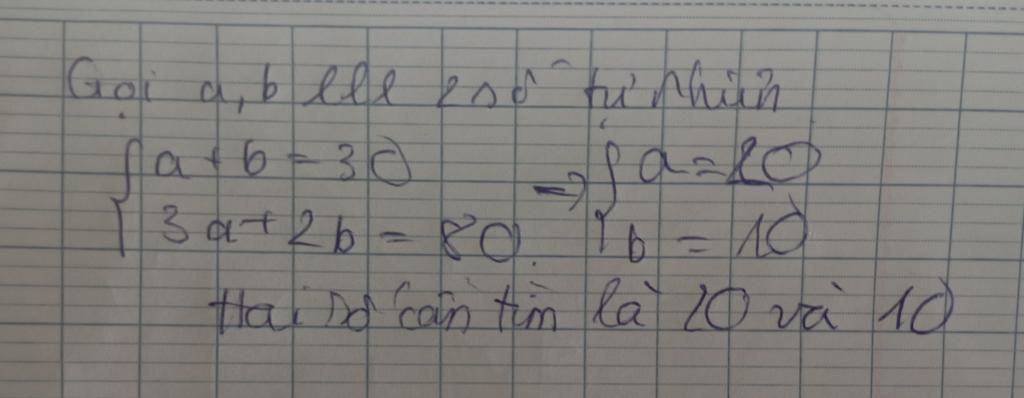 Gọi a, b lll 2 số tự nhiên
{a + b = 30 => {a = 20
{3a + 2b = 80. {b = 10
Hai số cần tìm là 20 và 10